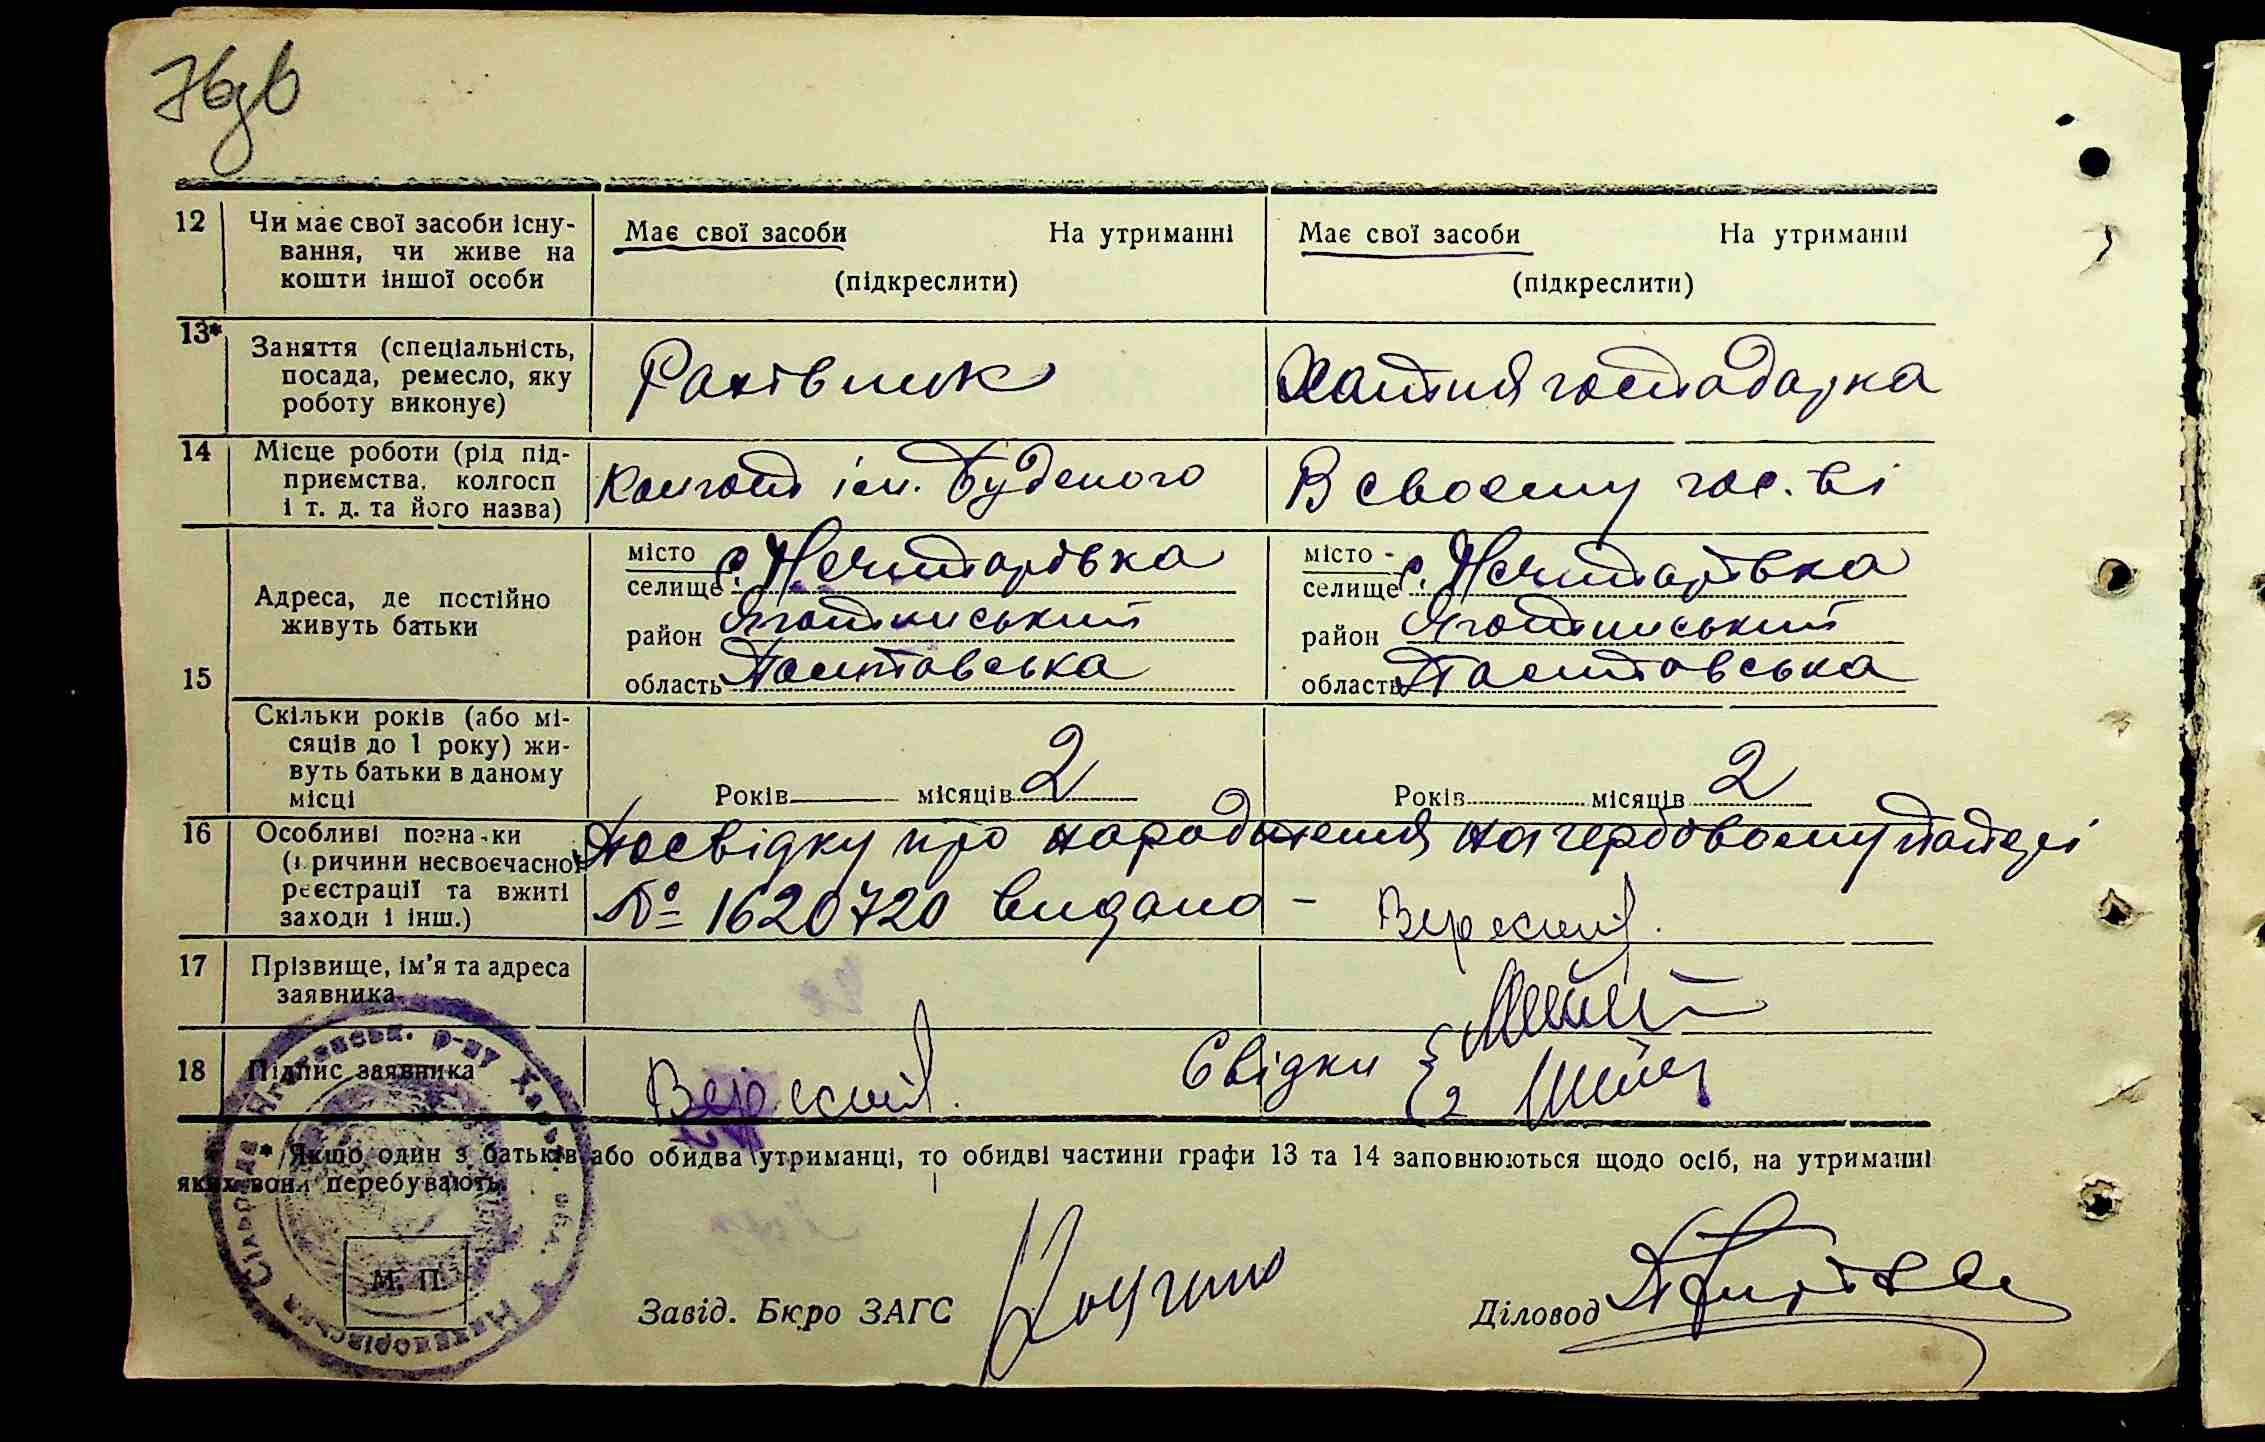 76зв
12 Чи має свої засоби існу-
вання, чи живе на
кошти іншої особи
Має свої засоби На утриманні
(підкреслити)
Має свої засоби На утриманні
(підкреслити)
13* Заняття (спеціальність,
посада, ремесло, яку
роботу виконує)
Рахівник
Хатня господарка
14 Місце роботи (рід під-
приємства, колгосп
і т. д. та його назва)
Колгосп ім. Буденого
В своєму гос.-ві
15 Адреса, де постійно
живуть батьки
місто
селище с.
район Яготинський
область Полтавська
місто -
селище с.
район Яготинський
область Полтавська
Скільки років (або мі-
сяців до 1 року) жи-
вуть батьки в даному
місці
Років — місяців 2
Років місяців 2
16 Особливі познаки
(причини несвоєчасної
реєстрації та вжиті
заходи і інш.)
Посвідку про народження на гербовому папері
№ 1620720 видано -
17 Прізвище, ім'я та адреса
заявника
18 Підпис заявника
Свідки
2
* Якщо один з батьків або обидва утриманці, то обидві частини графи 13 та 14 заповнюються щодо осіб, на утриманні
яких вони перебувають.
М. П.
Завід. Бюро ЗАГС
Діловод